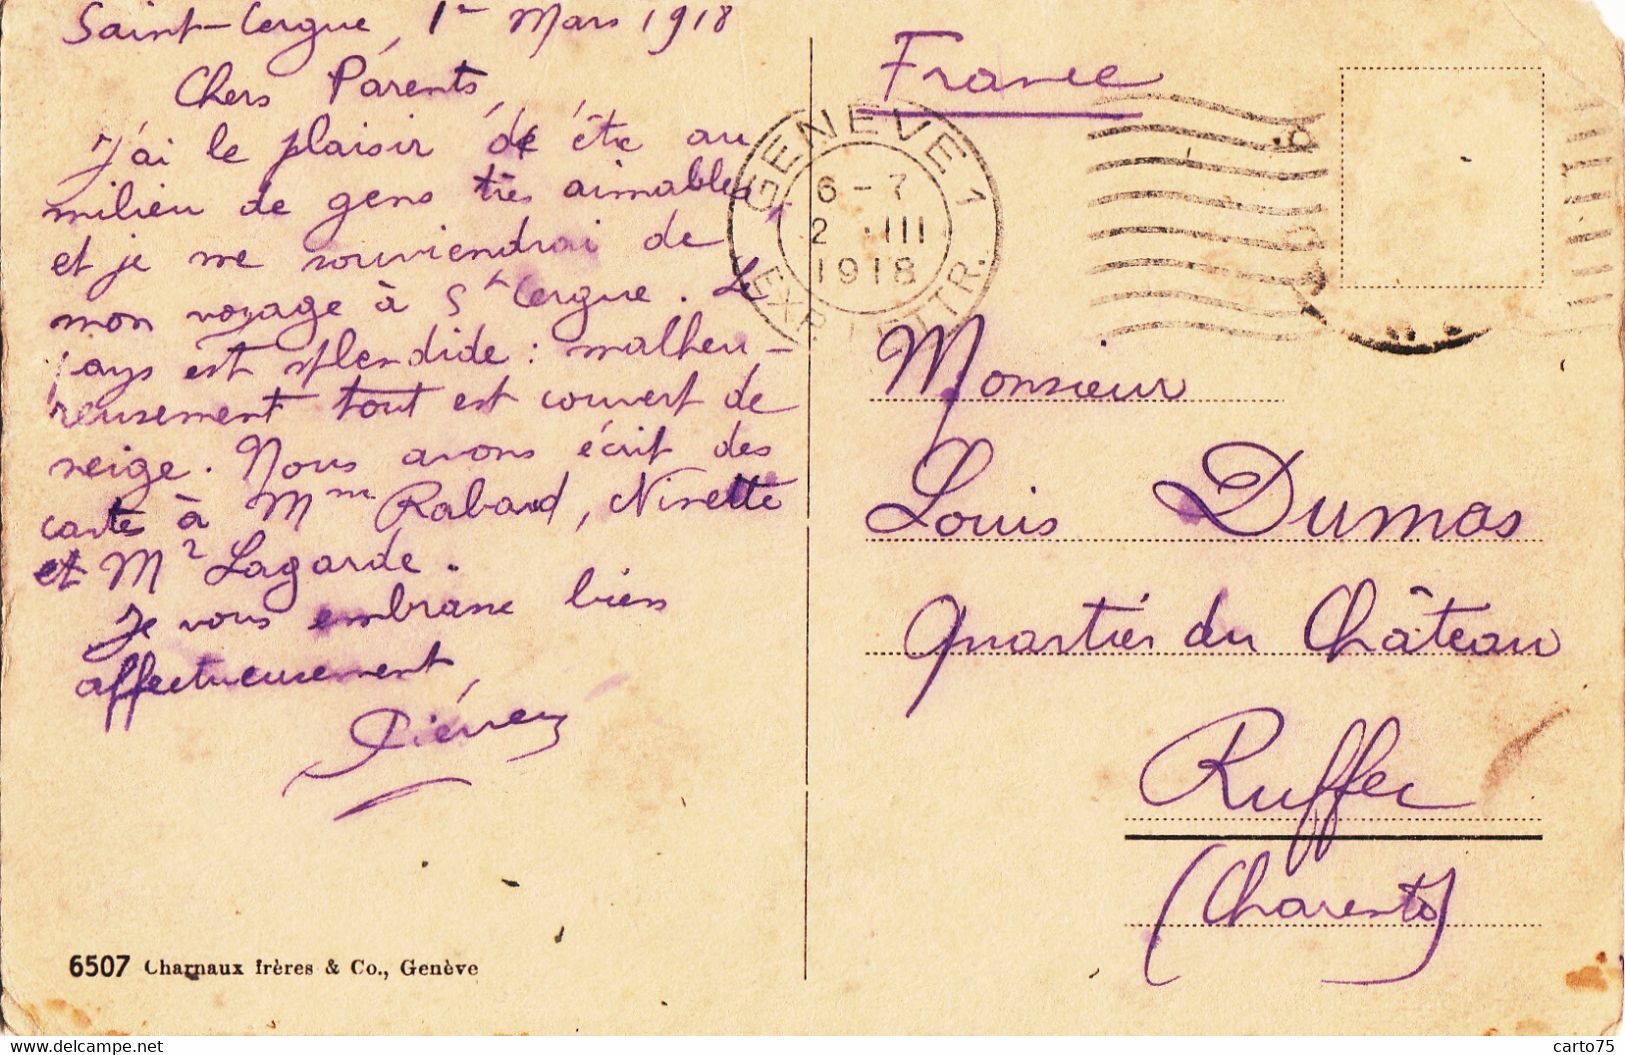 Saint-Cergue, 1er Mars 1918
Chers Parents,
J'ai le plaisir de être au
milieu de gens très aimables,
et je me souviendrai de
mon voyage à St Cergue. Le
pays est splendide : malheu-
reusement tout est couvert de
neige. Nous avons écrit des
carte à Mme Rabaud, Ninette
et Mr Lagarde.
Je vous embrasse bien
affectueusement,
6507 Charnaux frères & Co., Genève
GENEVE 1
6-7
2 .III
1918
EXP. LETTR.
France
Monsieur
Louis Dumas
Quartier du Château
Ruffec
(Charente)
delcampe.net
carto75